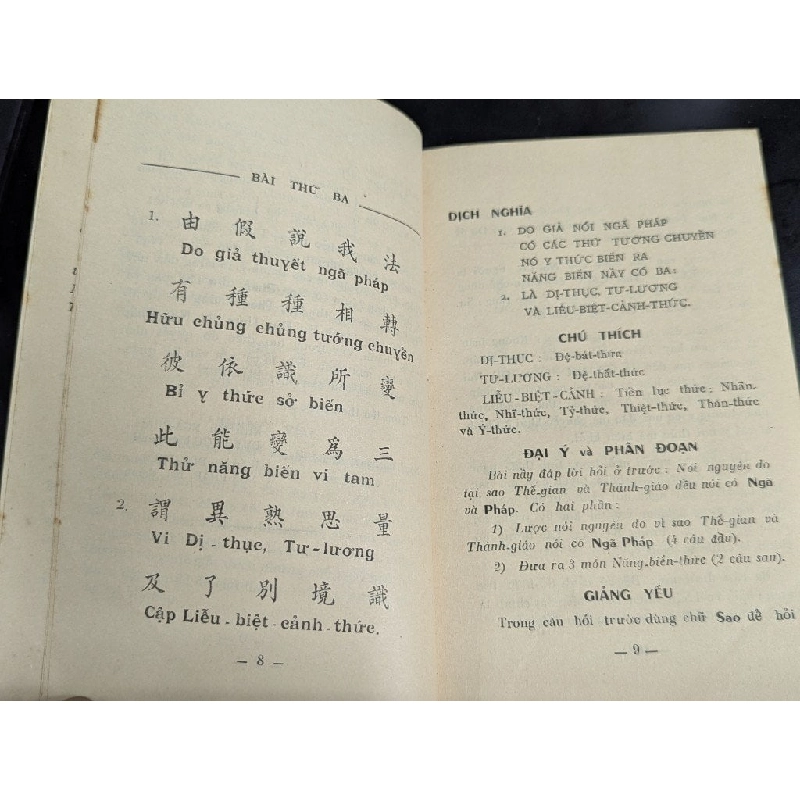 BÀI THỨ BA
1. 由 假 說 我 法
Do giả thuyết ngã pháp
有 種 種 相 轉
Hữu chủng chủng tướng chuyển
彼 依 識 所 變
Bỉ y thức sở biến
此 能 變 爲 三
Thử năng biến vi tam
2. 謂 異 熟 思 量
Vi Dị-thục, Tư-lương
及 了 別 境 識
Cập Liễu-biệt-cảnh-thức.
— 8 —
DỊCH NGHĨA
1. DO GIẢ NÓI NGÃ PHÁP
CÓ CÁC THỨ TƯỚNG CHUYỂN
NÓ Y THỨC BIẾN RA
NĂNG BIẾN NÀY CÓ BA:
2. LÀ DỊ-THỤC, TƯ-LƯƠNG
VÀ LIỄU-BIỆT-CẢNH-THỨC.
CHÚ THÍCH
DỊ-THỤC : Đệ-bát-thức
TƯ-LƯƠNG : Đệ-thất-thức
LIỄU-BIỆT-CẢNH : Tiền lục thức: Nhãn-
thức, Nhĩ-thức, Tỷ-thức, Thiệt-thức, Thân-thức
và Ý-thức.
ĐẠI Ý và PHÂN ĐOẠN
Bài nầy đáp lời hỏi ở trước : Nói nguyên do
tại sao Thế-gian và Thánh-giáo đều nói có Ngã
và Pháp. Có hai phần :
1) Lược nói nguyên do vì sao Thế-gian và
Thánh-giáo nói có Ngã Pháp (4 câu đầu).
2) Đưa ra 3 món Năng-biến-thức (2 câu sau).
GIẢNG YẾU
Trong câu hỏi trước dùng chữ Sao để hỏi
— 9 —